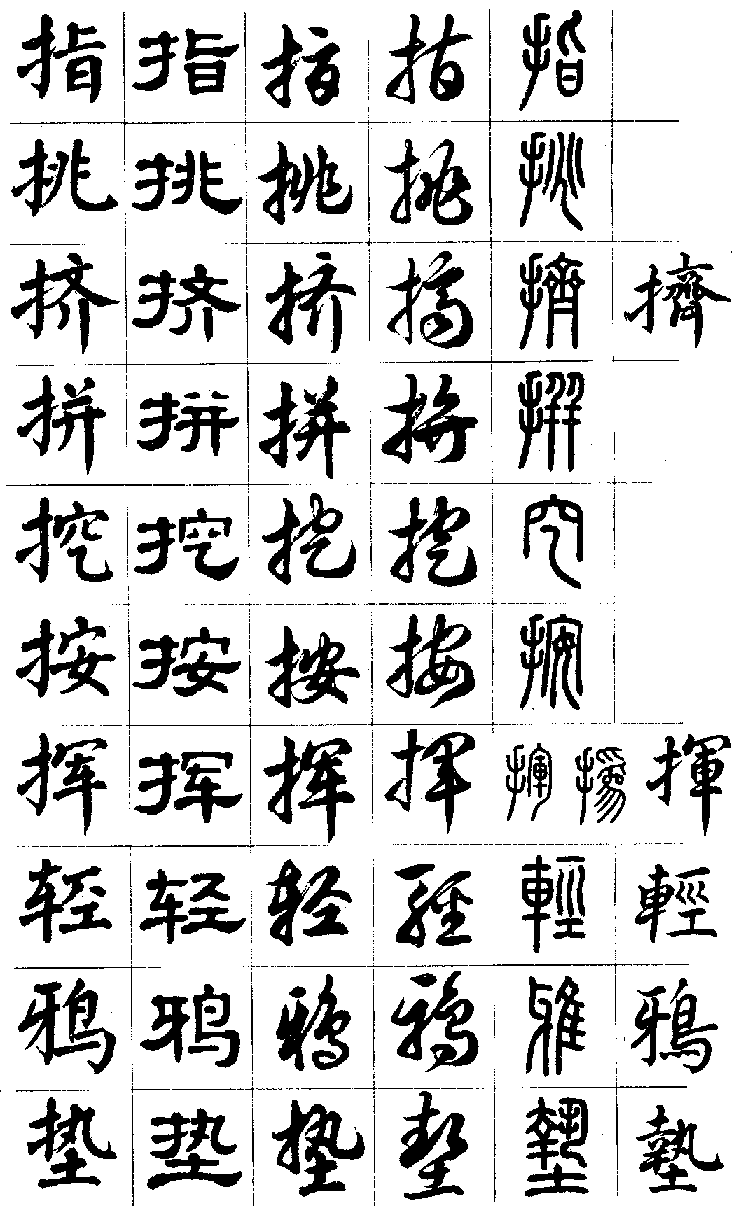 指 指 指 指 指
挑 挑 挑 挑 挑
挤 挤 挤 挤 擠 擠
拼 拼 拼 拼 拼
挖 挖 挖 挖 穵
按 按 按 按 按
挥 挥 挥 挥 揮 揚 揮
轻 轻 轻 輕 輕 輕
鸦 鸦 鸦 鴉 雅 鴉
垫 垫 垫 垫 墊 墊